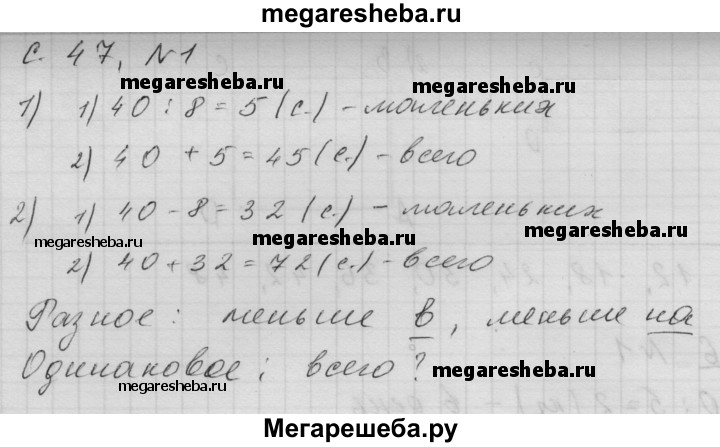 megaresheba.ru
с. 47, №1
megaresheba.ru megaresheba.ru
1) 1) 40 : 8 = 5 (с.) - маленьких
megaresheba.ru
2) 40 + 5 = 45 (с.) - всего
2) 1) 40 - 8 = 32 (с.) - маленьких
megaresheba.ru megaresheba.ru
2) 40 + 32 = 72 (с.) - всего
Разное: меньше в, меньше на
megaresheba.ru megaresheba.ru
Одинаковое: всего?
megaresheba.ru megaresheba.ru
Мегарешеба.ру